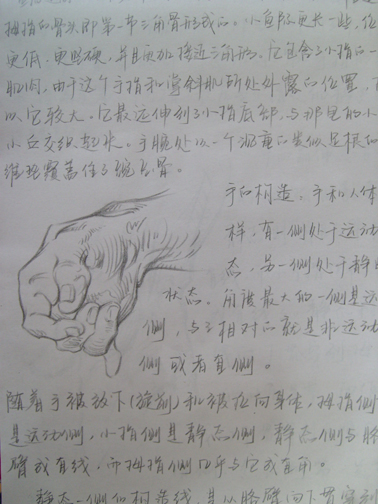 拇指的骨头即第一节三角骨形成的。小鱼际更长一些，位
更低，更坚硬，并且更加接近三角形，它包含了小指的一
肌肉，由于这个手指和掌斜肌所处外露的位置，
以它较大。它最远伸到了小指底部，与那里的小
小丘交织起来。手腕处以一个沉重的类似足根的
维垫覆盖住了豌豆骨。
手的构造，手和人体
样，有一侧处于运动
态，另一侧处于静
状态，角度最大的一侧是运
侧，与之相对的就是非运动
侧或者直侧。
随着手被放下(旋前)和被拉向身体，拇指侧
是运动侧，小指侧是静态侧，静态侧与胳
臂成直线，而拇指侧几乎与它成直角。
静态一侧的构造线，是从胳臂向下贯穿